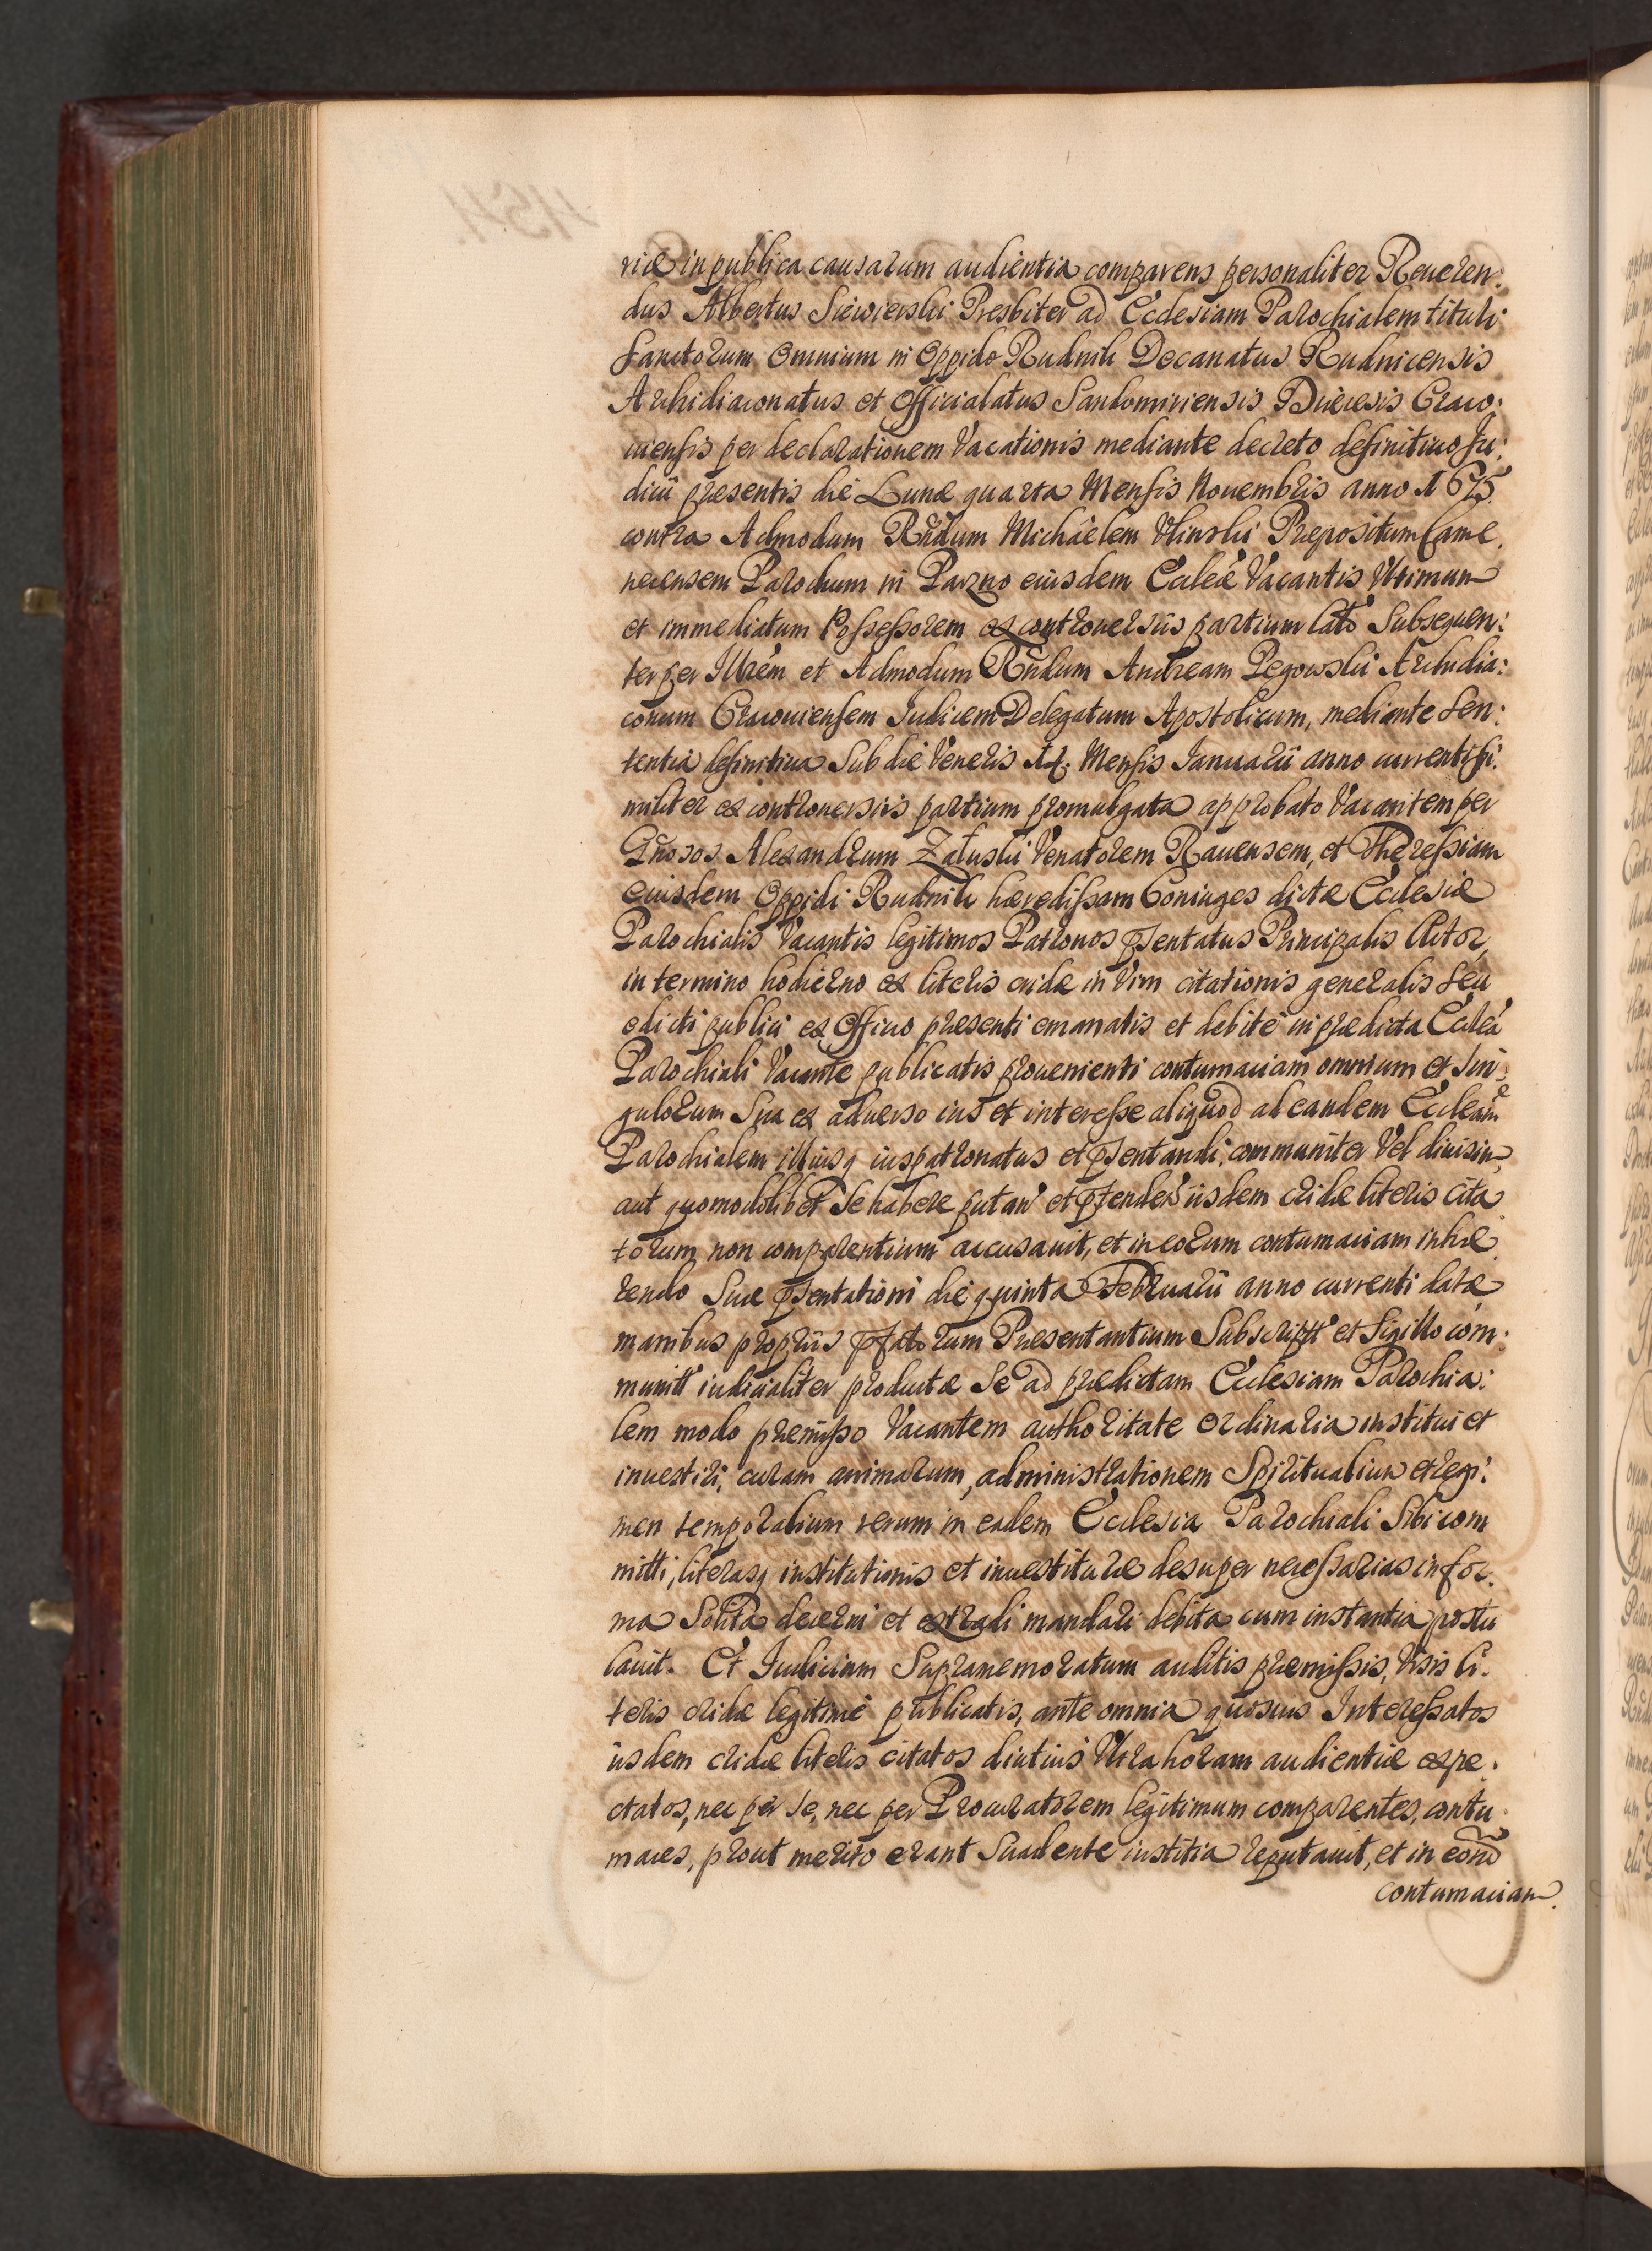 riæ in publica causarum audientia comparens personaliter Reueren:
dus Albertus Siewierski Presbiter ad Ecclesiam Parochialem tituli
Sanctorum Omnium in Oppido Rudnik Decanatus Rudnicensis
Archidiaconatus et Officialatus Sandomiriensis Diæcesis Craco:
uiensis per declarationem Vacationis mediante decreto definitiuo Ju:
dicii presentis die Lunæ quarta Mensis Nouembris anno 1675.
contra Admodum Rñdum Michaëlem Præpositum Came
necensem Parochum in Parzno eiusdem Eccleæ Vacantis Vltimum
et immediatum Possessorem ex controuersiis partium lato Subsequen:
ter per Illrem et Admodum Rñdum Andream Pegowski Archidia:
conum Cracouiensem Iudicem Delegatum Apostolicum, mediante Sen:
tentia definitiua Sub die Veneris Mensis Ianuarii anno currenti si:
militer ex controuersiis partium promulgata approbato Vacantem per
Gñosos Alexandrum Załuski Venatorem Rauensem, et Theressiam
eiusdem Oppidi Rudnik hæredissam Coniuges dictæ Ecclesiæ
Parochialis Vacantis legitimos Patronos pñsentatus Principalis Actor,
in termino hodierno ex literis cridæ in Vim citationis generalis seu
edicti publici ex Officio presenti emanatis et debite in prædicta Eccleã
Parochiali Vacante publicatis prouenienti contumaciam omnium et Sin:
gulorum Sua ex aduerso ius et interesse aliquod ad eandem Eccleam
Parochialem illiusq iuspatronatus et pñsentandi, communiter Vel diuisim,
aut quomodolibet Se habere putan et iisdem cridæ literis cita
torum non comparentium accusauit, et in eorum contumaciam inhæ
rendo Suæ pñsentationi die quinta Februarii anno currenti datæ
manibus propriis Præsentantium Subscriptt et Sigillo com:
munitt iudicialiter productæ Se ad prædictam Ecclesiam Parochia:
lem modo præmisso Vacantem authoritate ordinaria institui et
inuestiri, curam animarum, administrationem Spiritualium et regi:
men temporalium rerum in eadem Ecclesia Parochiali Sibi com
mitti, literasq institutionis et inuestituræ desuper necessarias in for:
ma Solita decerni et extradi mandari debita cum instantia postu
lauit. Et Iudicium Supramemoratum auditis præmissis, Visis li:
teris cridæ legitime publicatis, ante omnia quosuis Interessatos
iisdem cridæ literis citatos diutius Vltra horam audientiæ expe:
ctatos, nec per se, nec per Procuratorem legitimum comparentes, contu
maces, prout merito erant Suadente iustitia reputauit, et in eorũd
contumaciam.